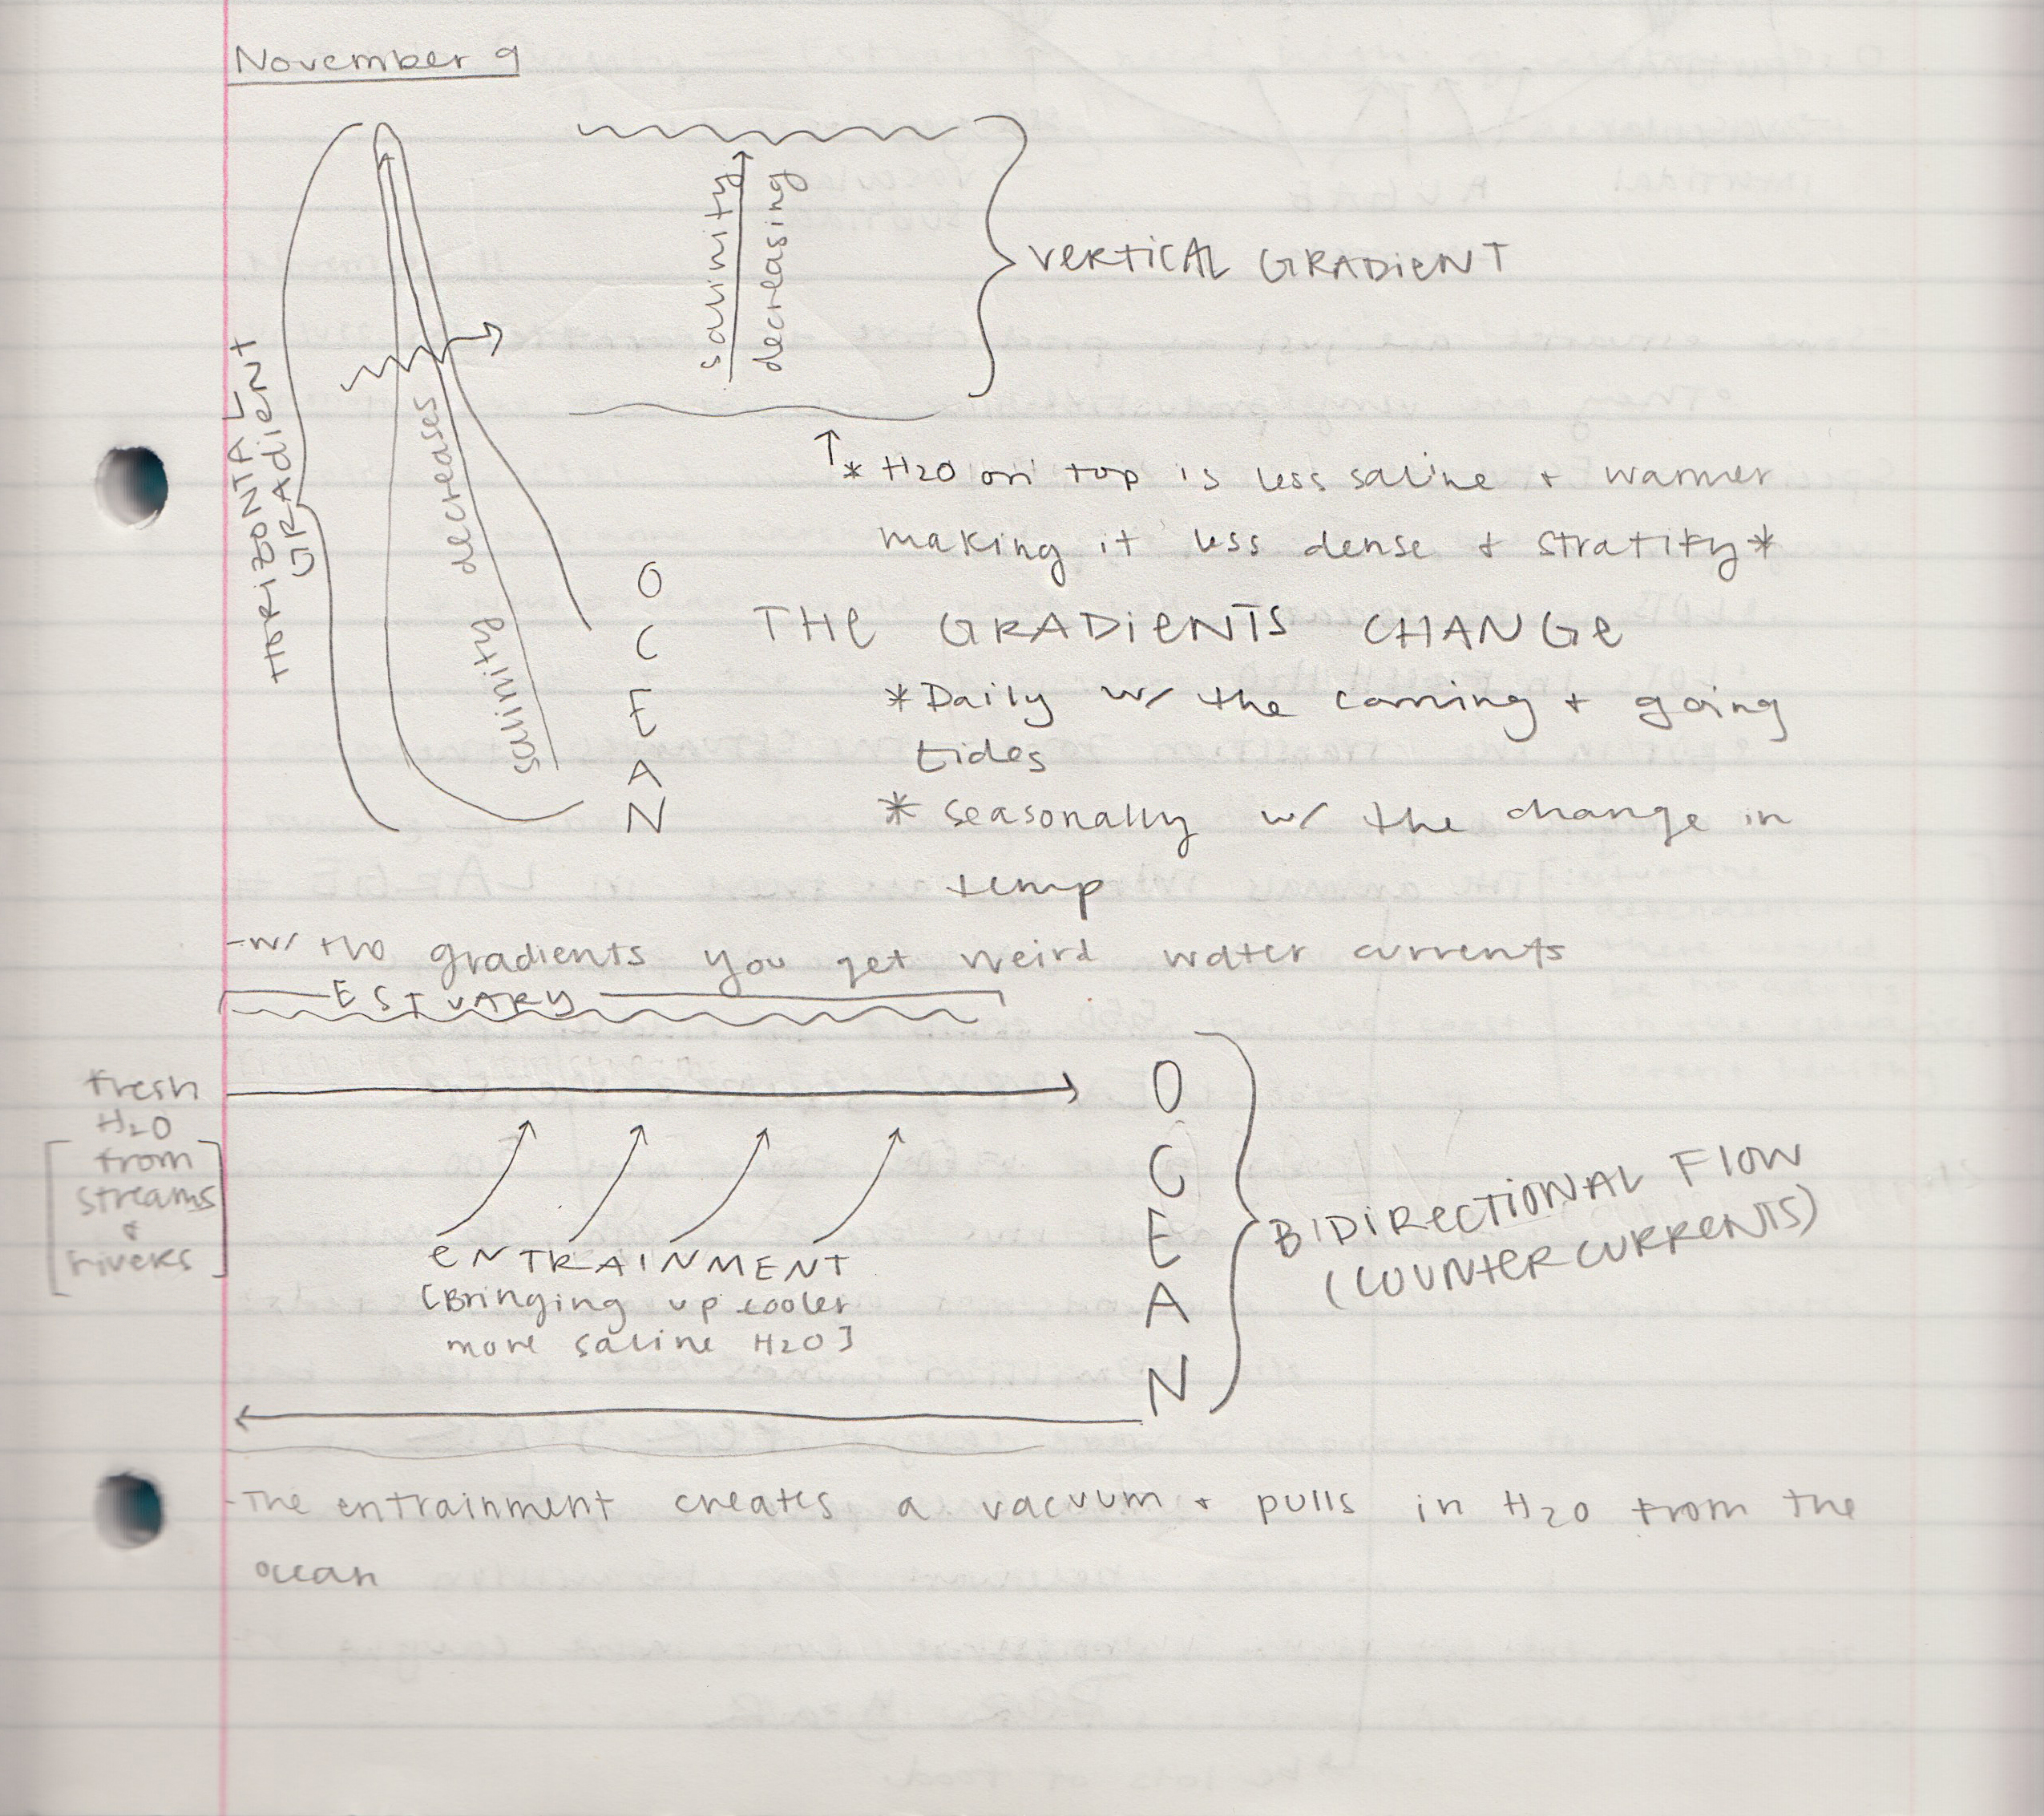 November 9
HORIZONTAL
GRADIENT
salinity decreases
OCEAN
salinity
decreasing
VERTICAL GRADIENT
↑* H2O on top is less saline + warmer
making it less dense + stratify*
THE GRADIENTS CHANGE
*Daily w/ the coming + going
tides
* seasonally w/ the change in
temp
-w/ two gradients you get weird water currents
ESTUARY
fresh
H2O
[from
streams
+
rivers]
ENTRAINMENT
[Bringing up cooler
more saline H2O]
OCEAN
BIDIRECTIONAL FLOW
(COUNTER CURRENTS)
-The entrainment creates a vacuum + pulls in H2O from the
ocean